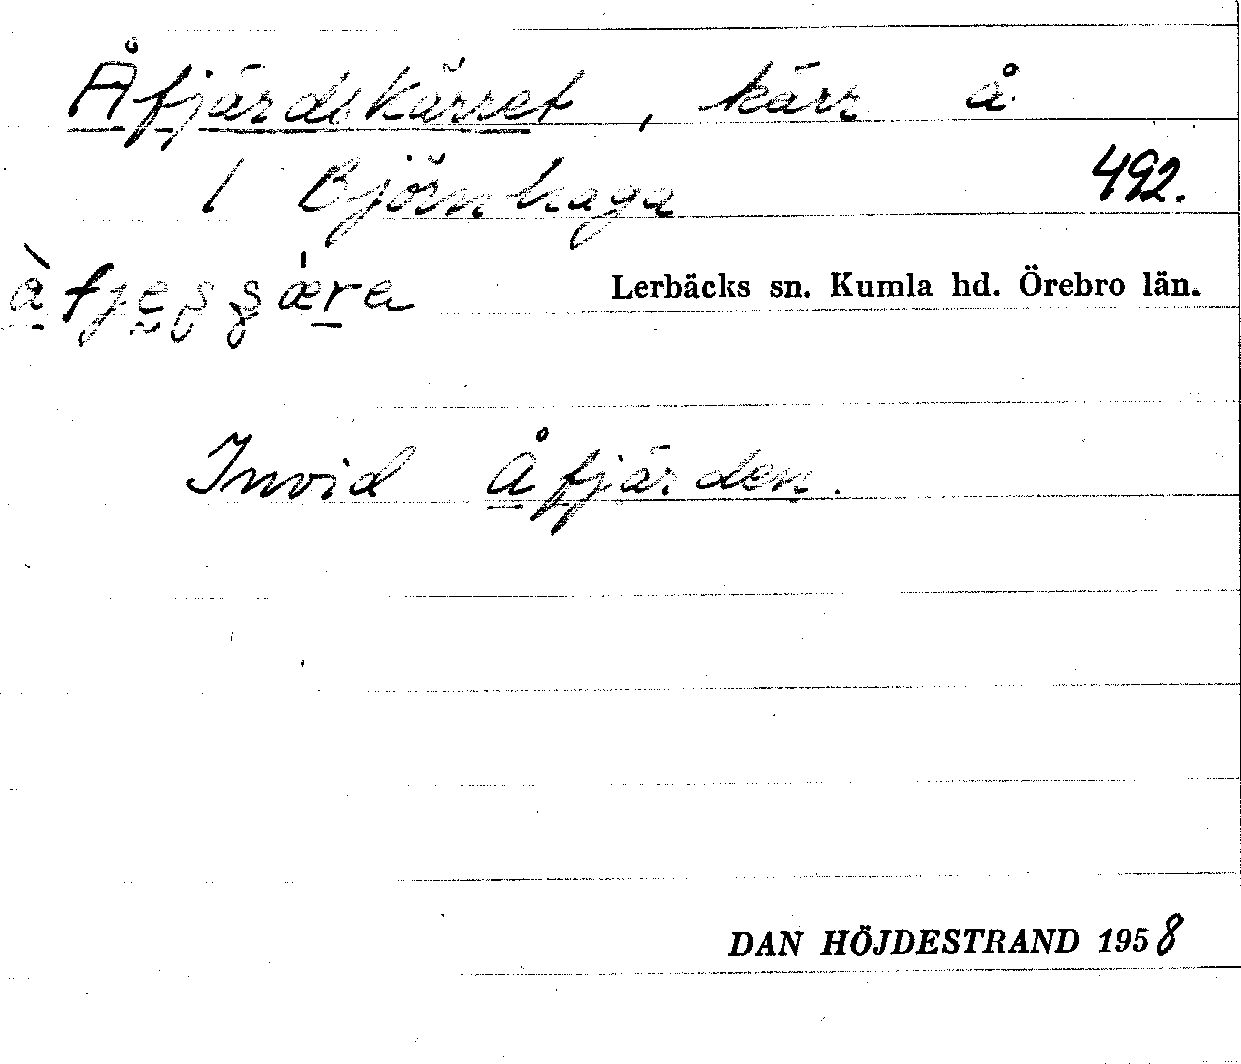 Åfjärdskärret, kärr å
1 Björnhaga 492.
Lerbäcks sn. Kumla hd. Örebro län.
Invid Åfjärden.
DAN HÖJDESTRAND 1958